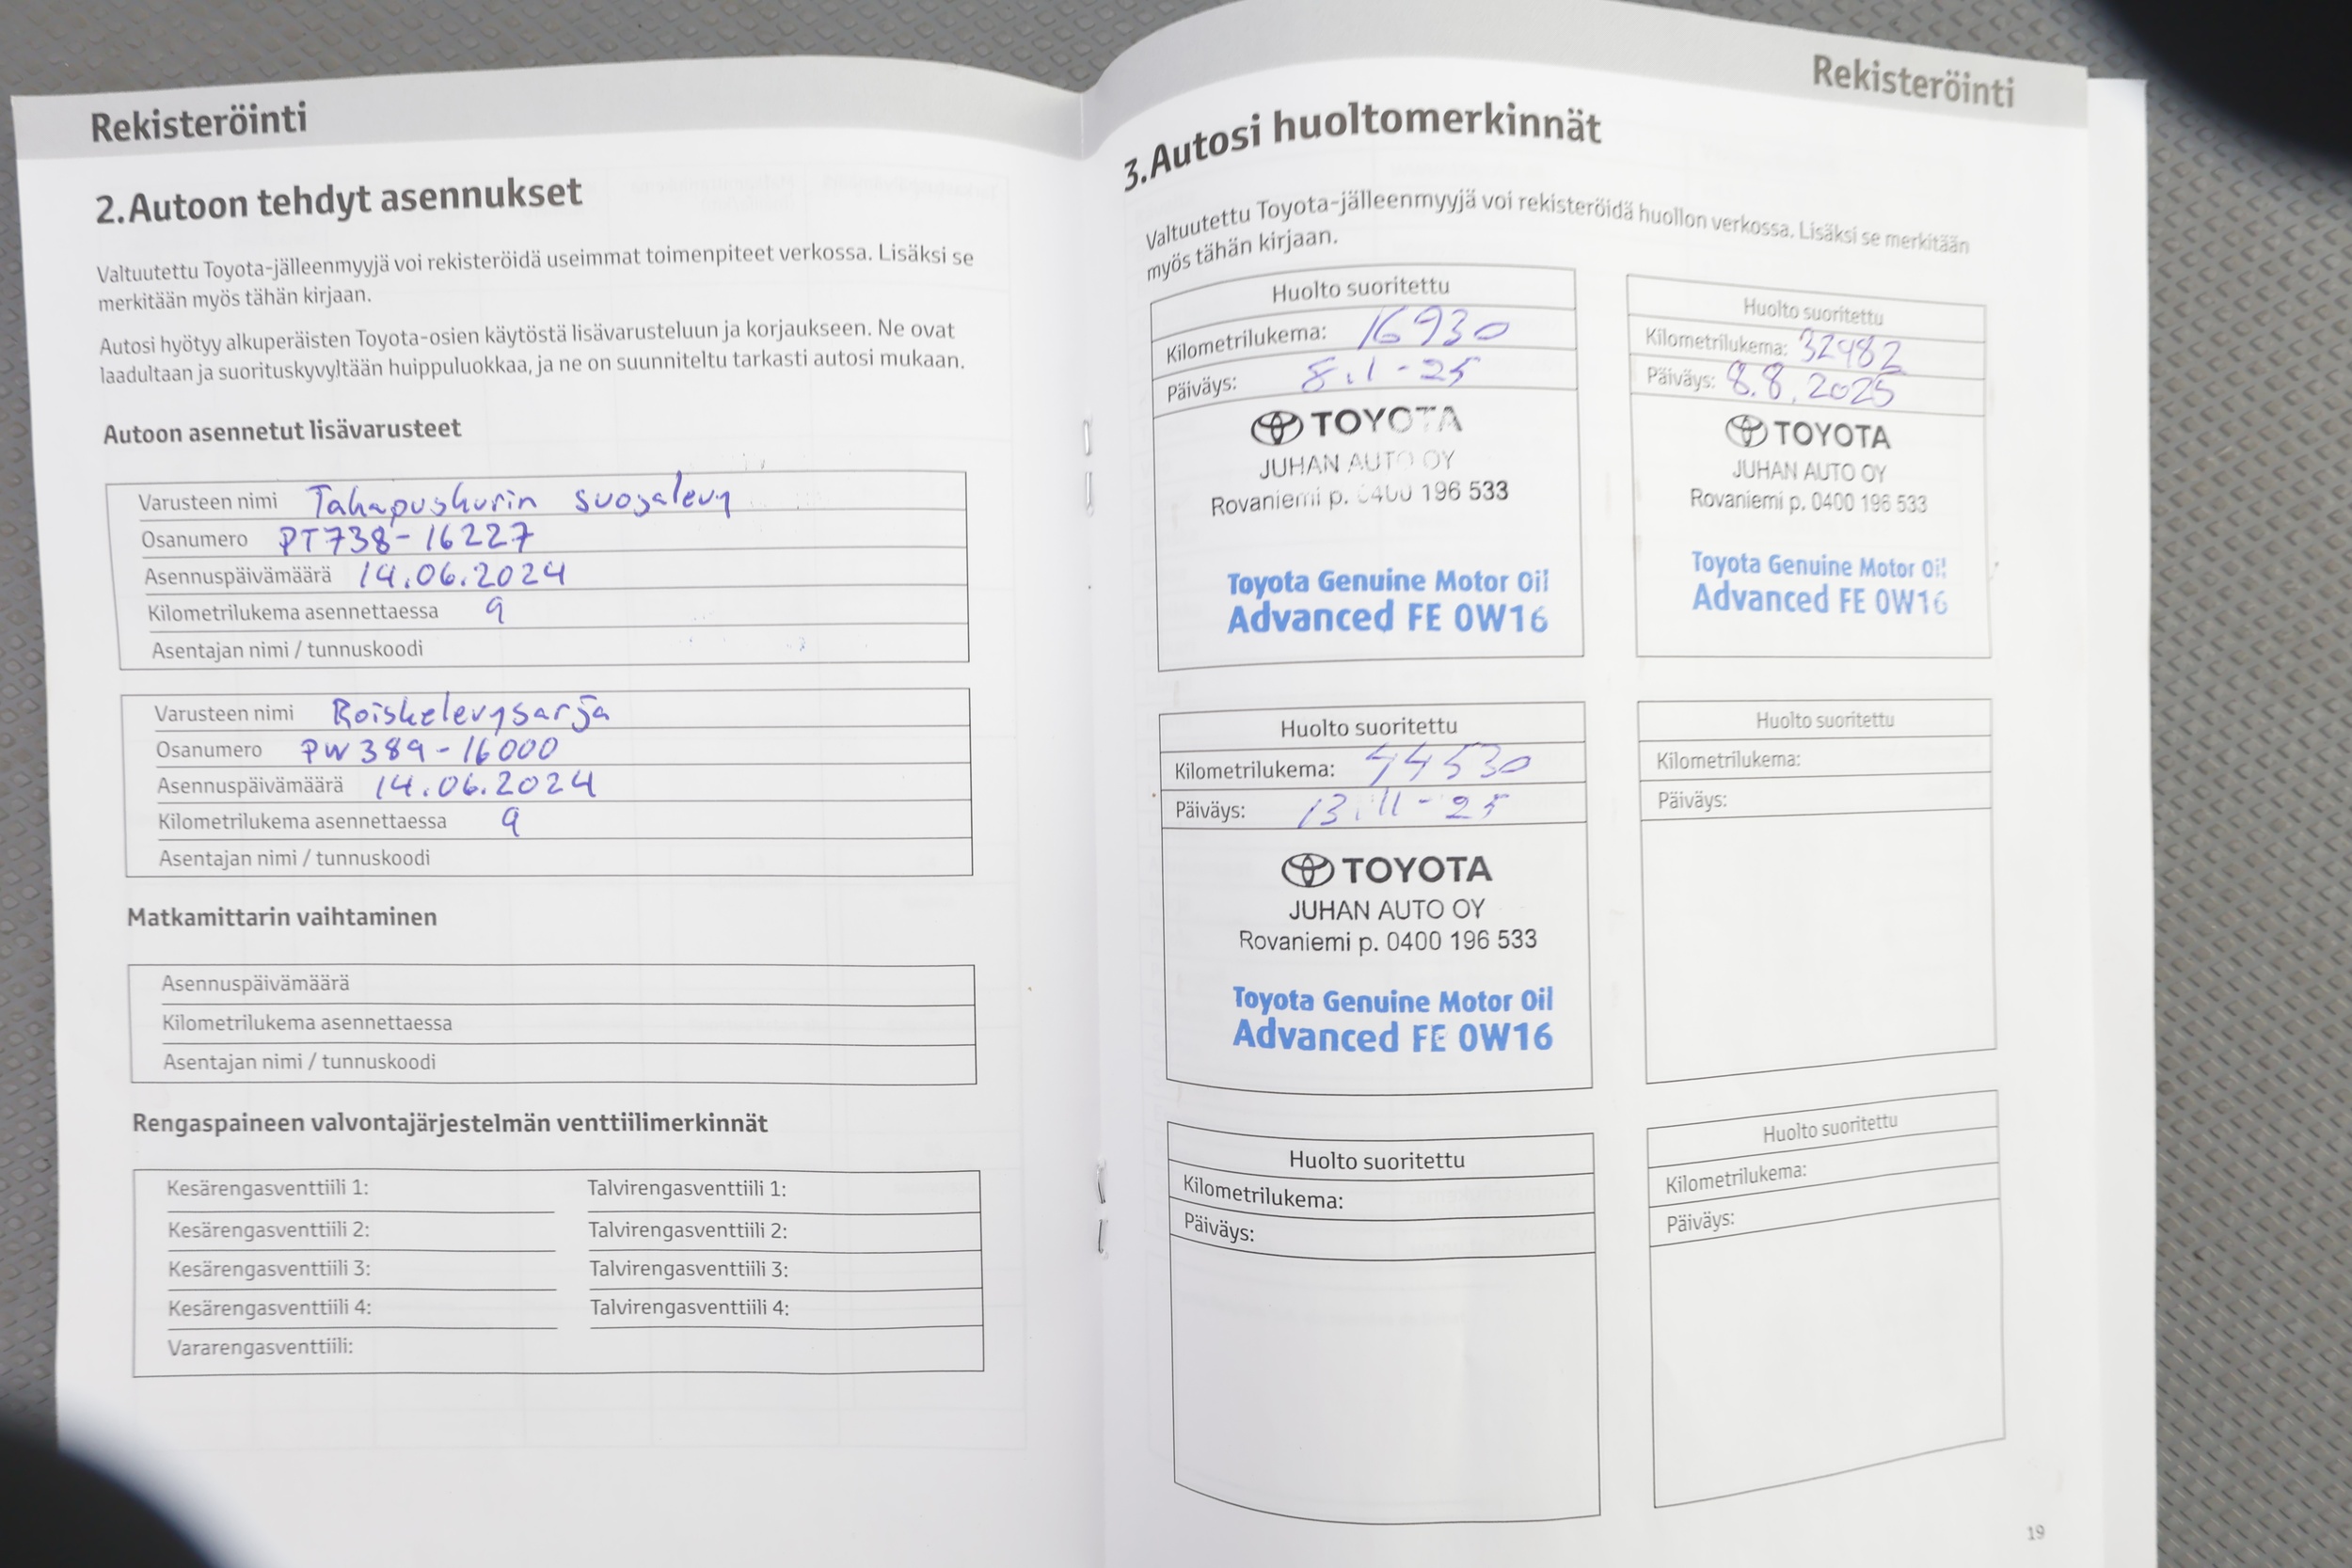 Rekisteröinti
2.Autoon tehdyt asennukset
Valtuutettu Toyota-jälleenmyyjä voi rekisteröidä useimmat toimenpiteet verkossa. Lisäksi se
merkitään myös tähän kirjaan.
Autosi hyötyy alkuperäisten Toyota-osien käytöstä lisävarusteluun ja korjaukseen. Ne ovat
laadultaan ja suorituskyvyltään huippuluokkaa, ja ne on suunniteltu tarkasti autosi mukaan.
Autoon asennetut lisävarusteet
Varusteen nimi Takapuskurin suojalevy
Osanumero PT738-16227
Asennuspäivämäärä 14.06.2024
Kilometrilukema asennettaessa 9
Asentajan nimi / tunnuskoodi
Varusteen nimi Roiskelevysarja
Osanumero PW389-16000
Asennuspäivämäärä 14.06.2024
Kilometrilukema asennettaessa 9
Asentajan nimi / tunnuskoodi
Matkamittarin vaihtaminen
Asennuspäivämäärä
Kilometrilukema asennettaessa
Asentajan nimi / tunnuskoodi
Rengaspaineen valvontajärjestelmän venttiilimerkinnät
Kesärengasventtiili 1: Talvirengasventtiili 1:
Kesärengasventtiili 2: Talvirengasventtiili 2:
Kesärengasventtiili 3: Talvirengasventtiili 3:
Kesärengasventtiili 4: Talvirengasventtiili 4:
Vararengasventtiili:
Rekisteröinti
3.Autosi huoltomerkinnät
Valtuutettu Toyota-jälleenmyyjä voi rekisteröidä huollon verkossa. Lisäksi se merkitään
myös tähän kirjaan.
Huolto suoritettu
Kilometrilukema: 16930
Päiväys: 8.1-25
TOYOTA
JUHAN AUTO OY
Rovaniemi p. 0400 196 533
Toyota Genuine Motor Oil
Advanced FE 0W16
Huolto suoritettu
Kilometrilukema: 32982
Päiväys: 8.8.2025
TOYOTA
JUHAN AUTO OY
Rovaniemi p. 0400 196 533
Toyota Genuine Motor Oil
Advanced FE 0W16
Huolto suoritettu
Kilometrilukema: 44530
Päiväys: 13.11-25
TOYOTA
JUHAN AUTO OY
Rovaniemi p. 0400 196 533
Toyota Genuine Motor Oil
Advanced FE 0W16
Huolto suoritettu
Kilometrilukema:
Päiväys:
Huolto suoritettu
Kilometrilukema:
Päiväys:
Huolto suoritettu
Kilometrilukema:
Päiväys:
19